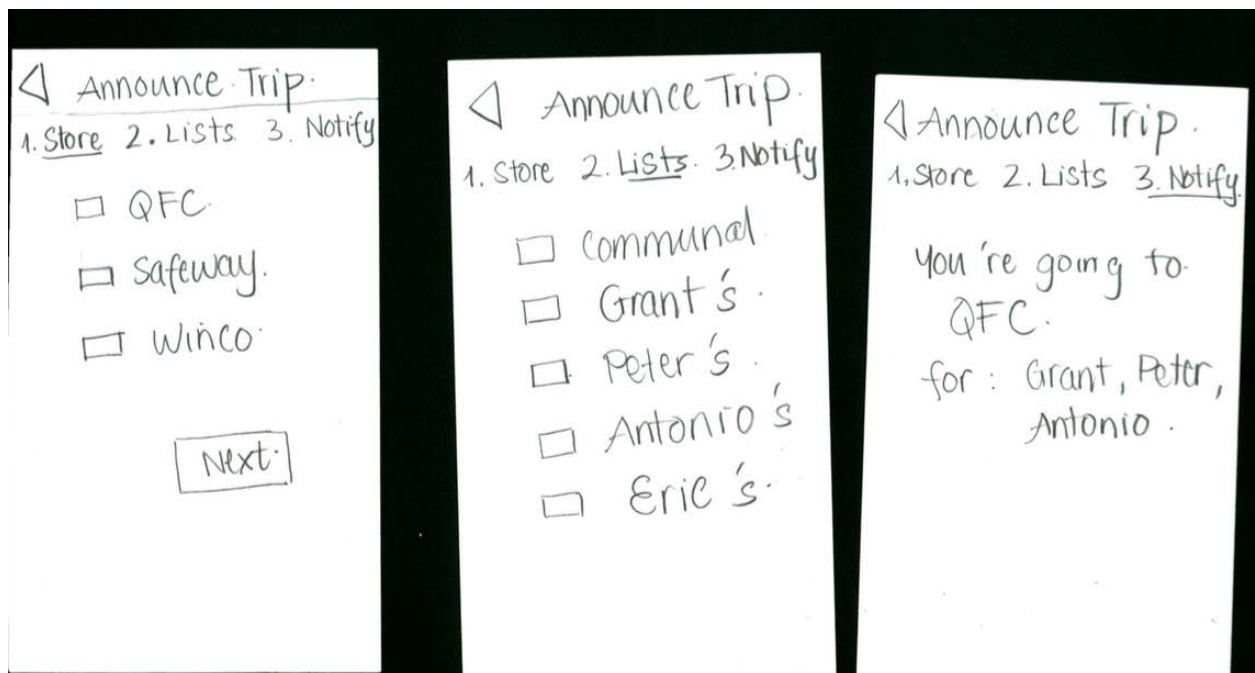 Announce Trip.
1. Store 2. Lists. 3. Notify
QFC.
Safeway.
Winco.
Next.
Announce Trip.
1. Store 2. Lists. 3. Notify
Communal
Grant's.
Peter's.
Antonio's
Eric's.
Announce Trip.
1. Store 2. Lists 3. Notify.
You're going to
QFC.
for: Grant, Peter,
Antonio.